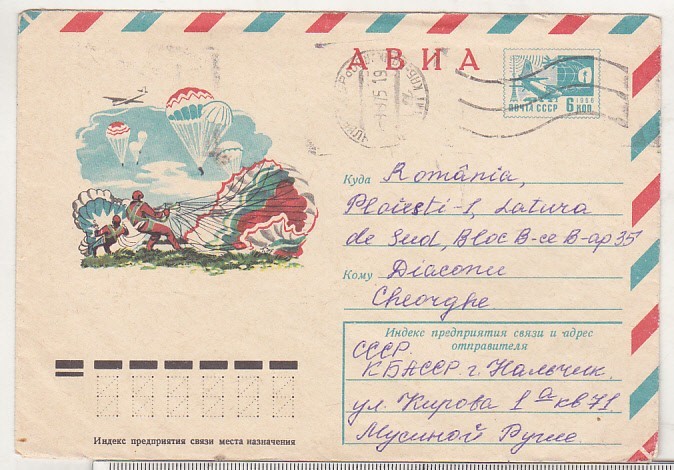 АВИА
1966
ПОЧТА СССР 6 КОП.
Куда România,
Ploiesti-1, Latura
de Sud, Bloc B-ce B-ap 35
Кому Diaconu
Gheorghe
Индекс предприятия связи и адрес
отправителя
СССР
КБАССР г. Нальчик.
ул. Кирова 1а кв 71
Мусиной
Индекс предприятия связи места назначения